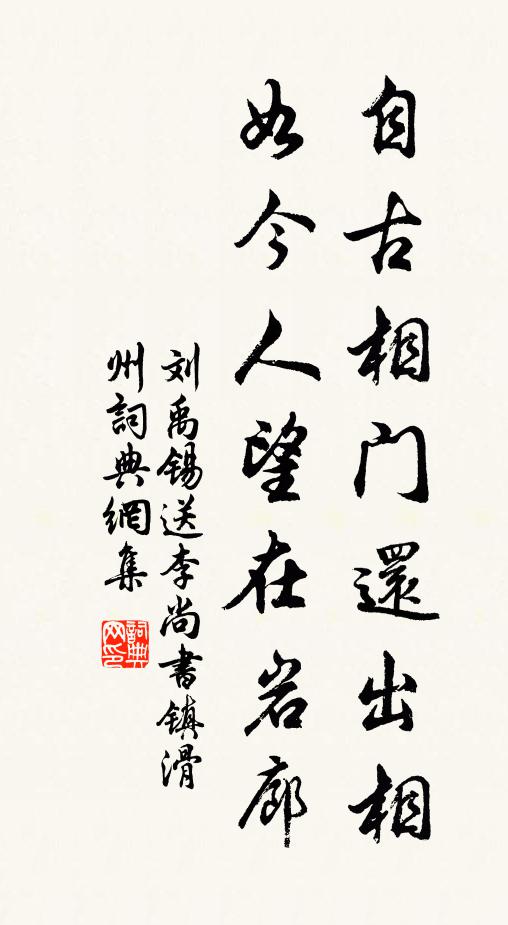 自古相门還出相
如今人望在岩廊
刘禹锡送李尚書镇滑
州詞典網集
詞典网印